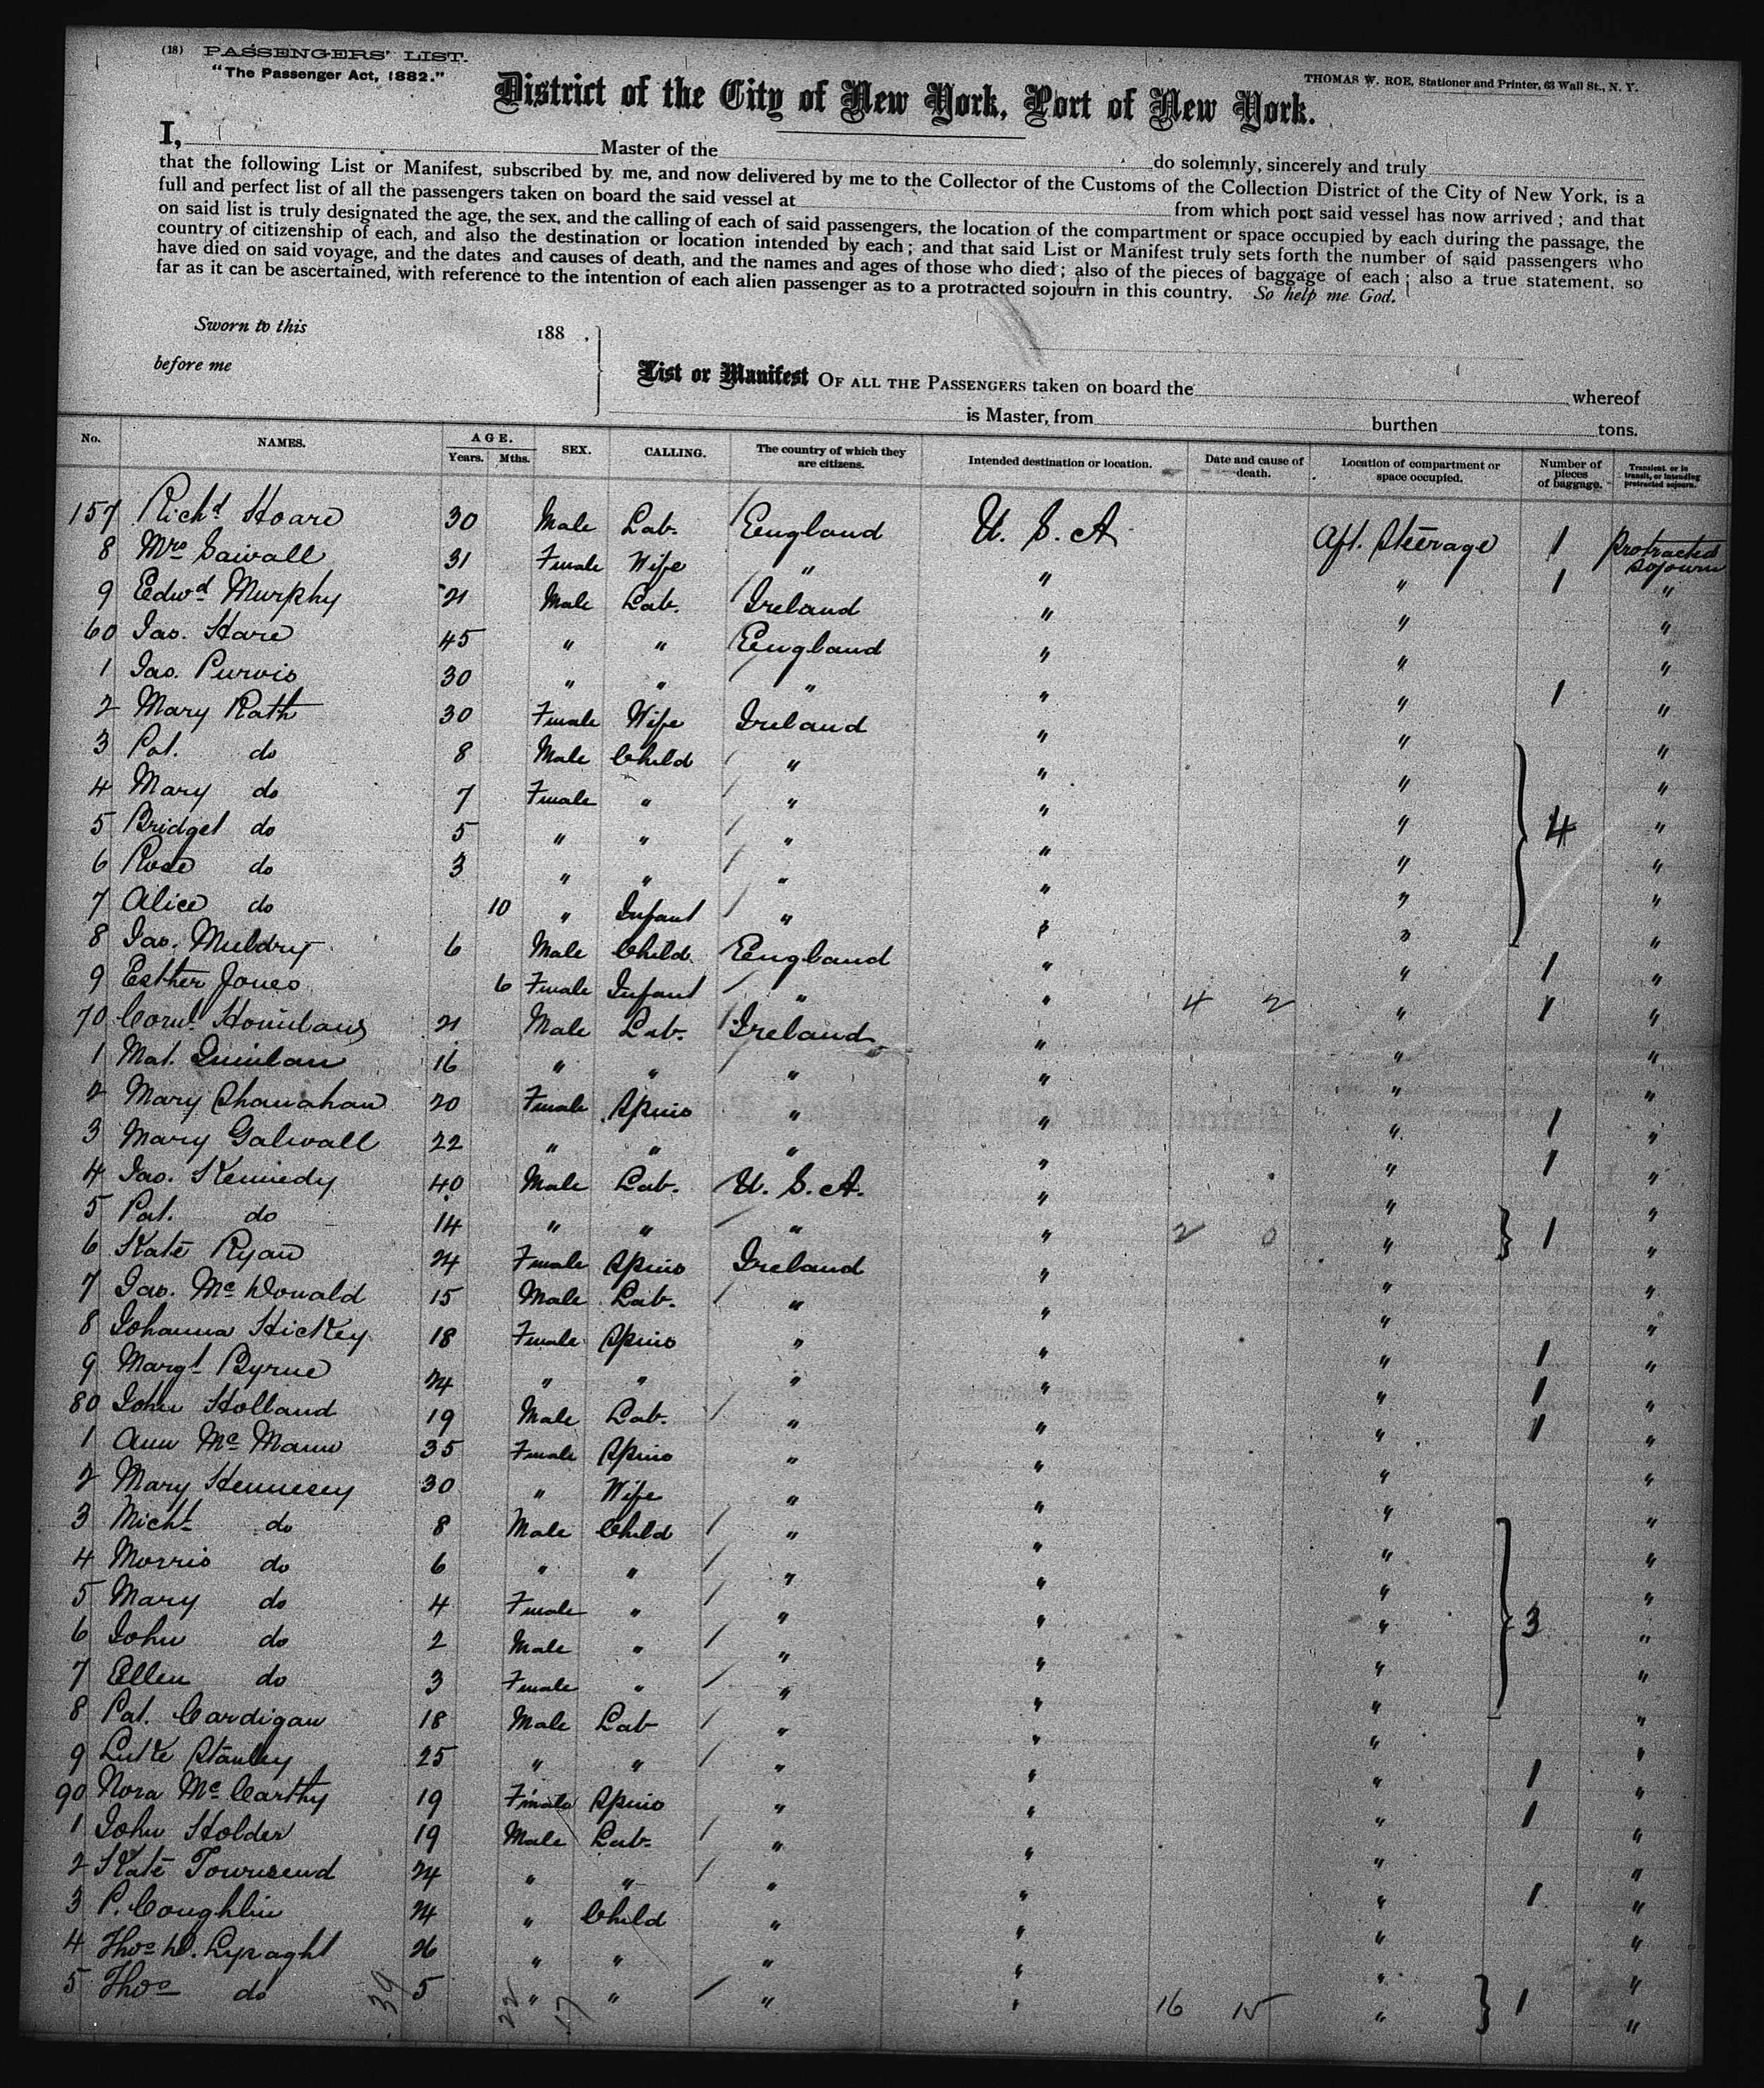 (18) PASSENGERS' LIST.
"The Passenger Act, 1882."
THOMAS W. ROE, Stationer and Printer, 63 Wall St., N. Y.
District of the City of New York, Port of New York.
I, Master of the do solemnly, sincerely and truly
that the following List or Manifest, subscribed by me, and now delivered by me to the Collector of the Customs of the Collection District of the City of New York, is a
full and perfect list of all the passengers taken on board the said vessel at from which port said vessel has now arrived; and that
on said list is truly designated the age, the sex, and the calling of each of said passengers, the location of the compartment or space occupied by each during the passage, the
country of citizenship of each, and also the destination or location intended by each; and that said List or Manifest truly sets forth the number of said passengers who
have died on said voyage, and the dates and causes of death, and the names and ages of those who died; also of the pieces of baggage of each; also a true statement, so
far as it can be ascertained, with reference to the intention of each alien passenger as to a protracted sojourn in this country. So help me God.
Sworn to this 188 .
before me
List or Manifest OF ALL THE PASSENGERS taken on board the whereof
is Master, from burthen tons.
No. NAMES. AGE. Years. Mths. SEX. CALLING. The country of which they are citizens. Intended destination or location. Date and cause of death. Location of compartment or space occupied. Number of pieces of baggage. Transient or in transit, or intending protracted sojourn.
157 Richd Hoare 30 Male Lab. England U. S. A. Aft. Steerage 1 Protracted sojourn
8 Mrs Saivall 31 Female Wife " " " 1 "
9 Edwd Murphy 21 Male Lab. Ireland " " "
60 Jas. Hare 45 " " England " " "
1 Jas. Purvis 30 " " " " " 1 "
2 Mary Rath 30 Female Wife Ireland " " "
3 Pat. do 8 Male Child " " " "
4 Mary do 7 Female " " " " "
5 Bridget do 5 " " " " " 4 "
6 Rose do 3 " " " " " "
7 Alice do 10 " Infant " " " "
8 Jas. Muldry 6 Male Child England " " 1 "
9 Esther Jones 6 Female Infant " " 4 2 " 1 "
70 Corns. 21 Male Lab. Ireland " " "
1 Mat. Quinlan 16 " " " " " "
2 Mary Shanahan 20 Female Spins " " " 1 "
3 Mary Galwall 22 " " " " " 1 "
4 Jas. Kennedy 40 Male Lab. U. S. A. " " "
5 Pat. do 14 " " " " 2 0 " 1 "
6 Kate Ryan 24 Female Spins Ireland " " "
7 Jas. Mc Donald 15 Male Lab. " " " "
8 Johanna Hickey 18 Female Spins " " " 1 "
9 Margt Byrne 24 " " " " " 1 "
80 John Holland 19 Male Lab. " " " 1 "
1 Ann Mc Mann 35 Female Spins " " " "
2 Mary Hennesey 30 " Wife " " " "
3 Michl do 8 Male Child " " " "
4 Morris do 6 " " " " " "
5 Mary do 4 Female " " " " "
6 John do 2 Male " " " " 3 "
7 Ellen do 3 Female " " " " "
8 Pat. Cardigan 18 Male Lab " " " "
9 Luke Stanley 25 " " " " " 1 "
90 Nora Mc Carthy 19 Female Spins " " " 1 "
1 John Holden 19 Male Lab. " " " "
2 Kate Townsend 24 " " " " " 1 "
3 P. Coughlin 24 " Child " " " "
4 Thos D. Lysaght 26 " " " " " "
5 Thos do 5 " " " " 16 15 " 1 "
39 22 17